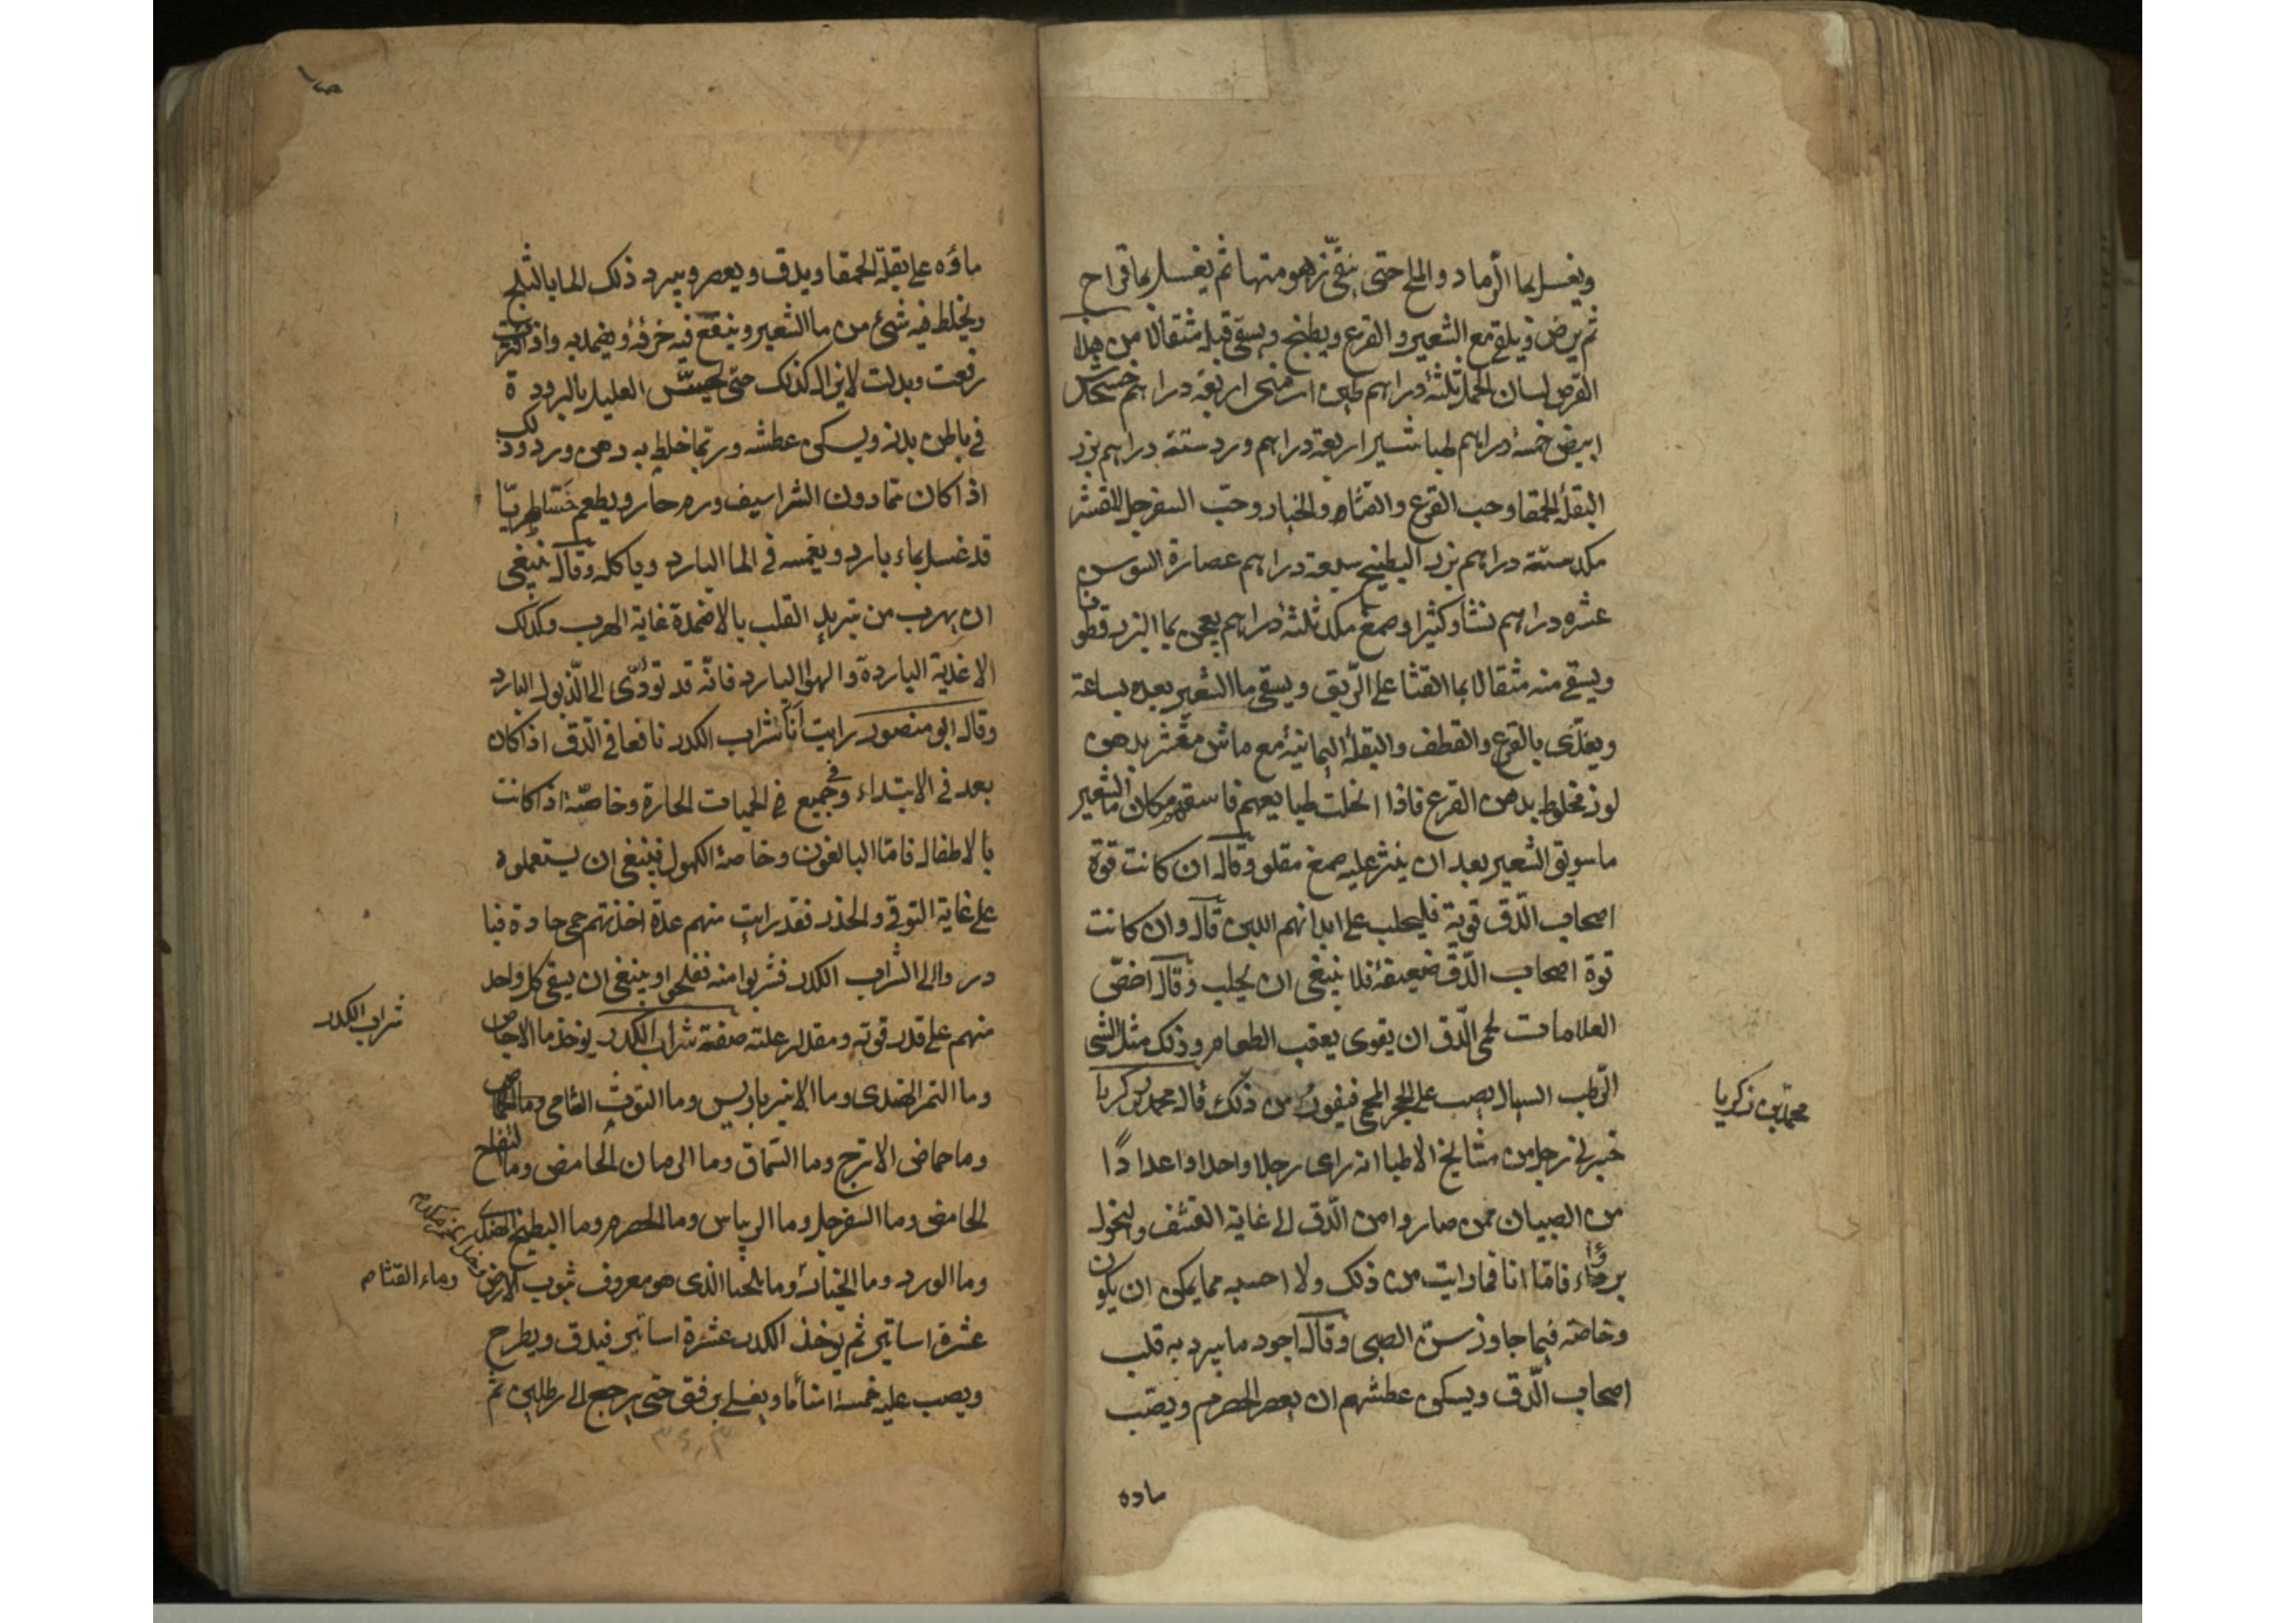 ويغسل بما الرماد والملح حتى ينقى زهومتها ثم يغسل بما قراح
ثم يرض ويلقى مع الشعير والقرع ويطبخ ويسقى قبله مثقالا من هذا
القرص لسان الحمل ثلثة دراهم طين ارمنى اربعة دراهم خشخاش
ابيض خمسة دراهم طباشير اربعة دراهم ورد ستة دراهم بزر
البقلة الحمقا وحب القرع والقثاء والخيار وحبّ السفرجل المقشر
مكد ستة دراهم بزر البطيخ سبعة دراهم عصارة السوس
عشره دراهم نشا وكثيرا وصمغ مكد ثلثة دراهم يعجن بما البزر قطونا
ويسقى منه مثقالا بما القثا على الرّيق ويسقى ما الشعير بعده بساعة
ويغذّى بالقرع والقطف والبقلة اليمانية مع ماش مقشر بدهن
لوز مخلوط بدهن القرع فاذا انحلت طبايعهم فاسقهم مكان ما الشعير
ما سويق الشعير بعد ان ينثر عليه صمغ مقلو وقال ان كانت قوة
اصحاب الدّق قوية فليحلب على ابدانهم اللبن قال وان كانت
قوة اصحاب الدّق ضعيفة فلا ينبغى ان يحلب وقال اخصّ
العلامات لحمى الدّق ان يقوى بعقب الطعام وذلك مثل الشى
الرّطب السيال يصب على الحجر المحمى فيفور من ذلك قال محمد بن زكريا
محمد بن زكريا
خبرنى رجل من مشايخ الاطبا انه راى رجلا واحدا واعدادًا
من الصبيان ممن صاروا من الدّق الى غاية القشف والنحول
برءوا فامّا انا فما رايت من ذلك ولا احسبه مما يمكن ان يكون
وخاصّة فيما جاوز سنّ الصبى وقال اجود ما يبرد به قلب
اصحاب الدّق ويسكن عطشهم ان يعصر الحصرم ويصّب
ماؤه
ماؤه على بقلة الحمقا ويدق ويعصر ويبرد ذلك الما بالثلج
ويخلط فيه شئ من ما الشعير وينقع فيه خرقة ويضمد به واذا فترت
رفعت وبدلت لا يزال كذلك حتى يحسّ العليل بالبرودة
فى باطن بدنه ويسكن عطشه وربّما خلط به دهن ورد وذلك
اذا كان تمّا دون الشراسيف ورم حار ويطعم خسّا طريّا
قد غسل بماء بارد ويغمسه فى الما البارد وياكله وقال ينبغى
ان يهرب من تبريد القلب بالاضمدة غاية الهرب وكذلك
الاغذية الباردة والهوا البارد فانّه قد تؤدّى الى الذّبول البارد
وقال ابو منصور رايت انا شراب الكدر نافعا فى الدّق اذا كان
بعد فى الابتداء وفى جميع الحميات الحارة وخاصّة اذا كانت
بالاطفال فامّا البالغون وخاصة الكهول فينبغى ان يستعملوه
على غاية التوقى والحذر فقد رايت منهم عدة اخذتهم حمى حادة فبا
دروا الى الشراب الكدر فشربوا منه ففلجوا وينبغى ان يسقى كل واحد
منهم على قدر قوته ومقدار علته صفة شراب الكدر يوخذ ما الاجاص
شراب الكدر
وما التمر الهندى وما الانبرباريس وما التوث الشامى وما الحماض
وما حماض الاترج وما السّماق وما الرمان الحامض وما التفاح
الحامض وما السفرجل وما الريباس وما الحصرم وما البطيخ الهندى
وما الورد وما الخيار وما الذى هو معروف بثوب الارض
وماء القثاء
عشرة اساتير ثم يوخذ الكدر عشرة اساتير فيدق ويطرح
ويصب عليه خمسة امنأ ما ويغلى برفق حتى يرجع الى رطلين ثم